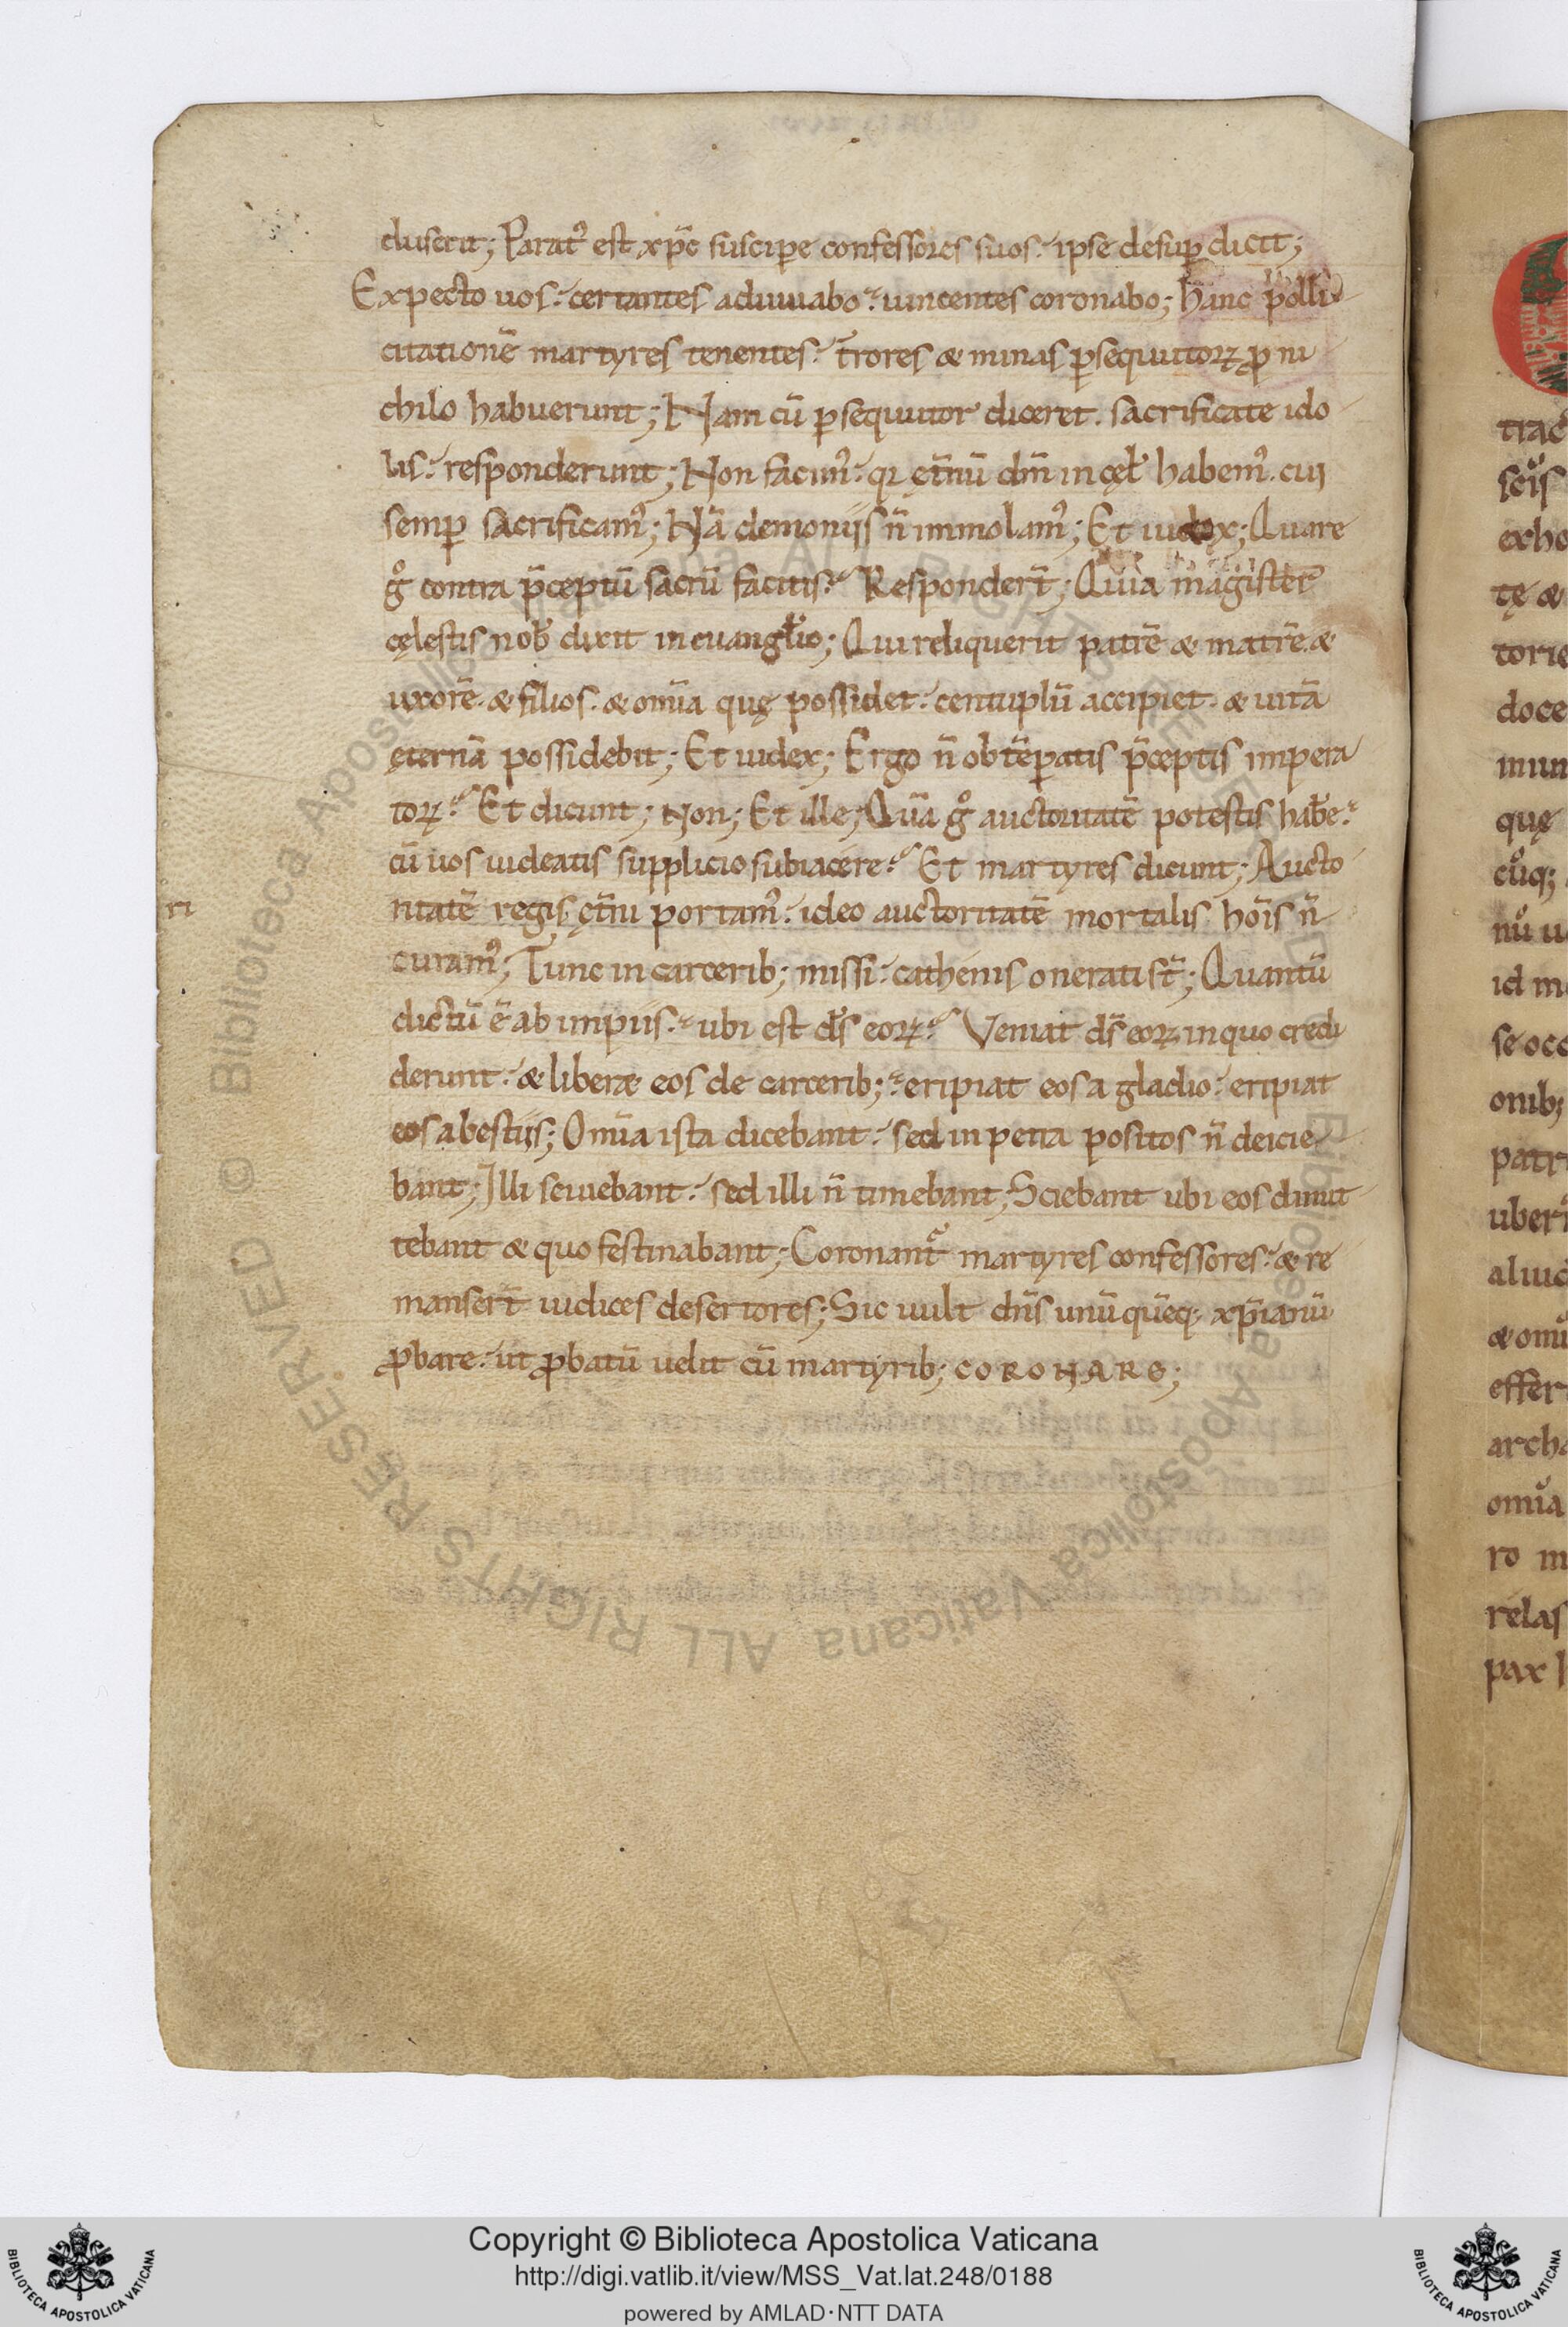 cluserit; Parat᷒ est xp̄c suscipe confessores suos. ipse desuꝑ dicit;
Expecto uos. certantes adiuuabo. uincentes coronabo; hanc polli
citationē martyres tenentes. t̄rores & minas ꝑsequutoꝝ ꝓ ni
chilo habuerunt; Nam cū ꝑsequutor diceret. sacrificate ido
lis. responderunt; Non facim᷒. qı ęt̄nū dn̄m in cęł habem᷒. cui
semꝑ sacrificam᷒; Nā demoniis n̄ immolam᷒; Et iudex; Quare
gͦ contra p̄ceptū sacrū facitis? Responder̄t; Quia magister
cęlestis nob̄ dixit in euangl̄io; Qui reliquerit patrē & matrē &
uxorē. & filios. & om̄ia quę possidet. centuplū accipiet. & uitā
ęternā possidebit; Et iudex; Ergo n̄ obtēꝑatis p̄ceptis impera
toꝝ? Et dicunt; Non; Et ille; Quā gͦ auctoritatē potestis hab̄e.
cū uos uideatis supplicio subiacere? Et martyres dicunt; Aucto
ritatē regis ęt̄ni portam᷒. ideo auctoritatē mortalis hoīs n̄
curam᷒; Tunc in carcerib; missi. cathenis onerati st̄; Quantū
dictū ē ab impiis. ubi est ds̄ eoꝝ? Veniat ds̄ eoꝝ in quo credi
derunt. & liber& eos de carcerib;. eripiat eos a gladio. eripiat
eos a bestiis; Om̄ia ista dicebant. sed in petra positos n̄ deicie
bant; Illi seuiebant. sed illi n̄ timebant; Sciebant ubi eos dimit
tebant & quo festinabant; Coronant᷑ martyres confessores. & re
manser̄t iudices desertores; Sic uult dn̄s unūquēq; xp̄ianū
ꝓbare. ut ꝓbatū uelit cū martyrib; CORONARE;
ri
trac
scīs
exho
tę &
torie
doce
mun
quę
cūq;
nū u
id m
se occ
onib;
patri
uberi
aliud
& omī
effer
archa
omīa
ro m
relas
pax l
Copyright © Biblioteca Apostolica Vaticana
http://digi.vatlib.it/view/MSS_Vat.lat.248/0188
powered by AMLAD·NTT DATA
BIBLIOTECA APOSTOLICA VATICANA
BIBLIOTECA APOSTOLICA VATICANA
© Biblioteca Apostolica Vaticana ALL RIGHTS RESERVED © Biblioteca Apostolica Vaticana ALL RIGHTS RESERVED